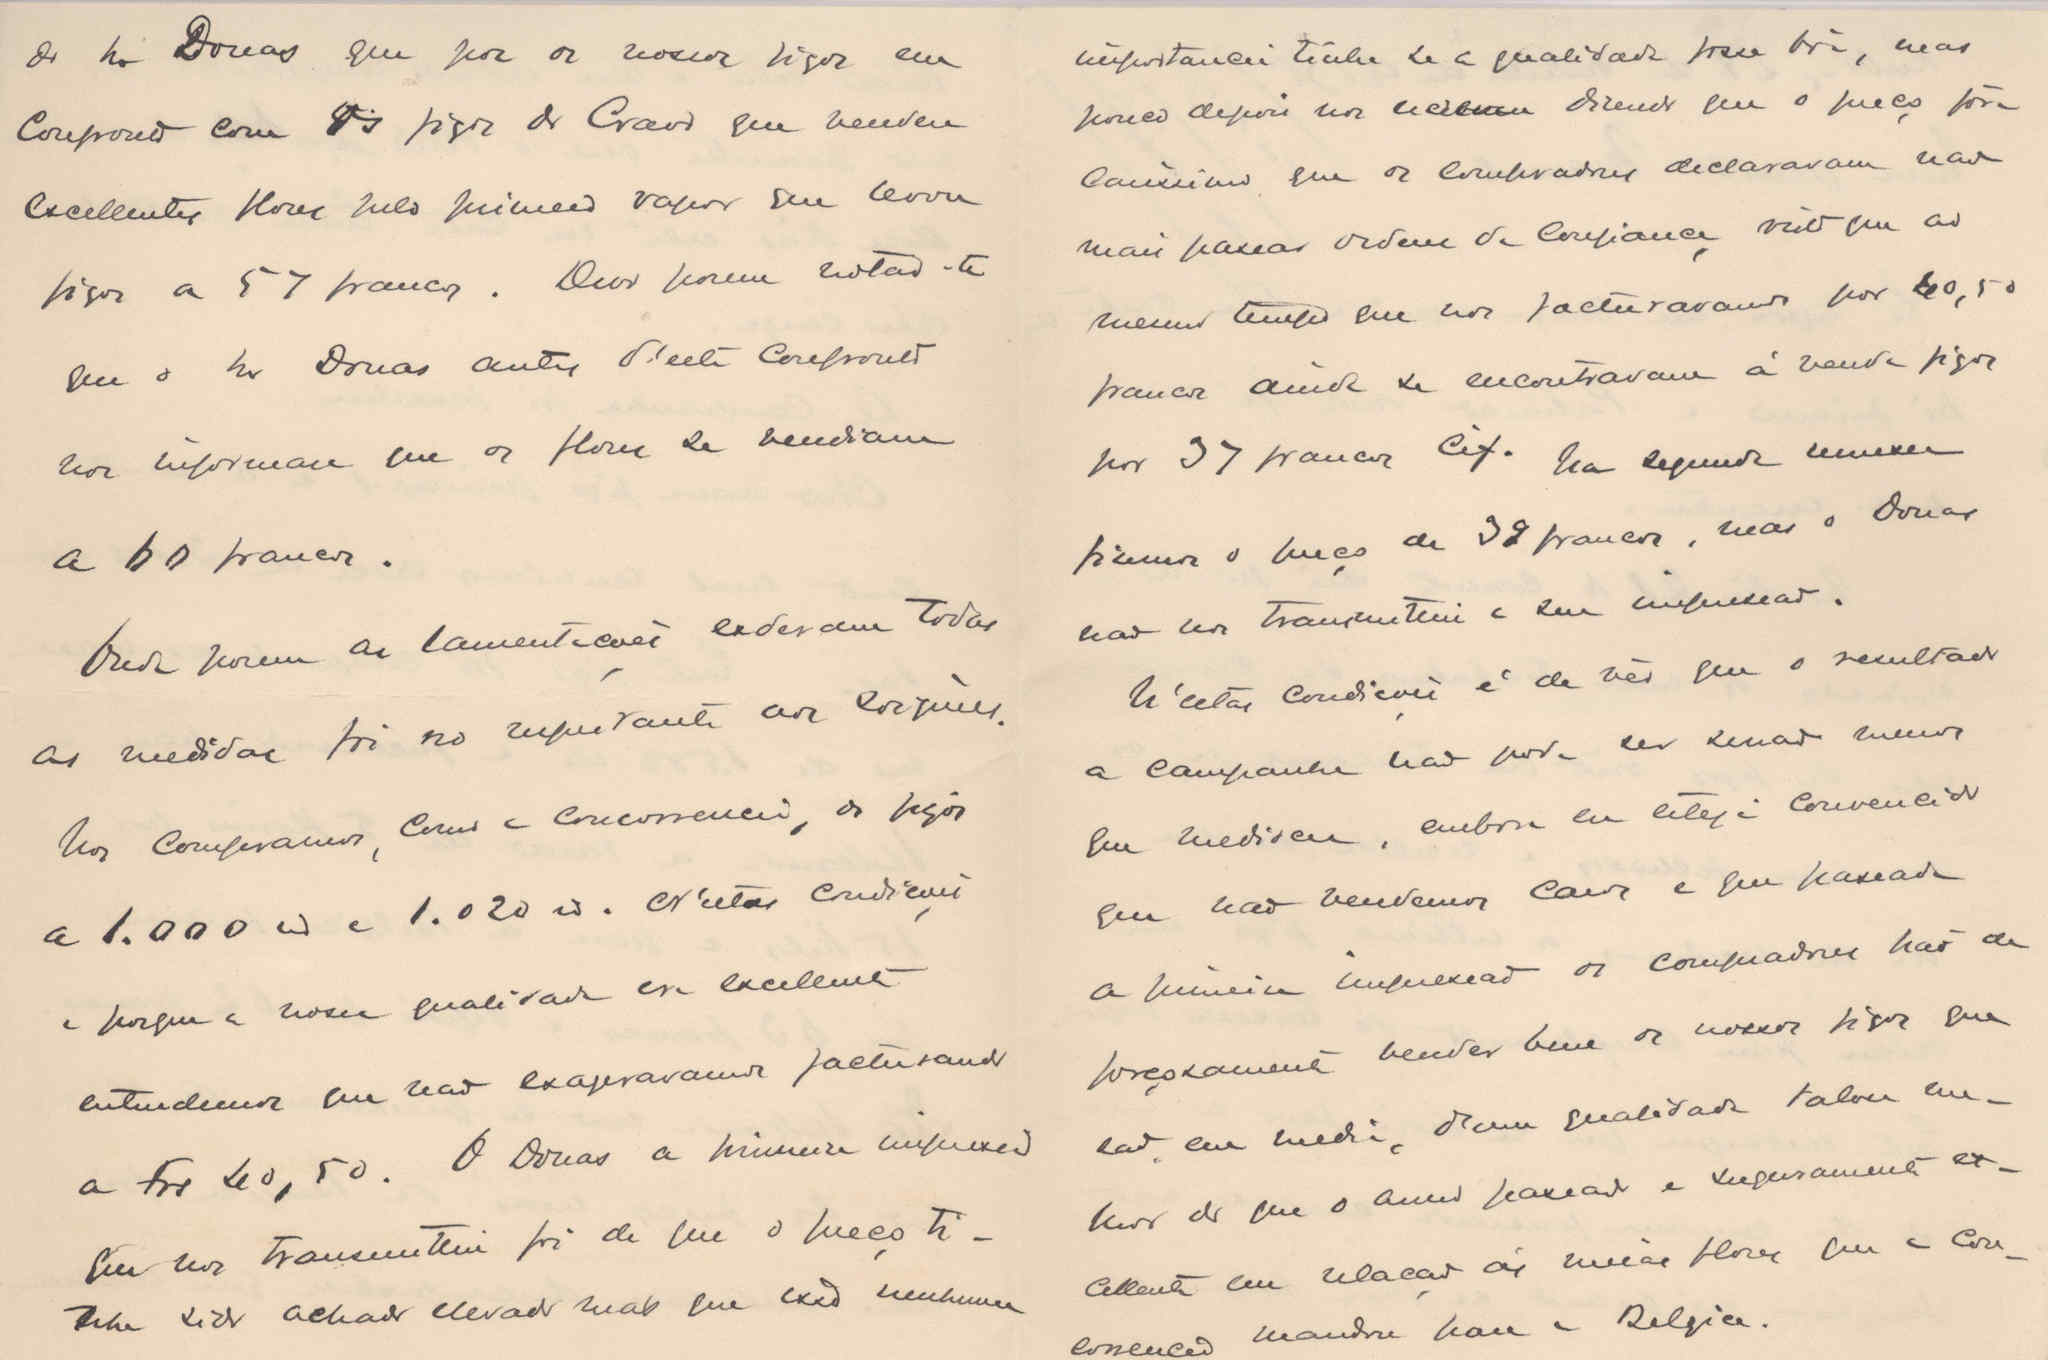 do Snr Douas que pôr os nossos figos em
confronto com os figos do Cravo que vendeu
excellentes flores pelo primeiro vapor que levou
figos a 57 francos. Devo porem notar-te
que o Snr Douas antes d'este confronto
nos informara que os flores se vendiam
a 60 francos.
Onde porem as lamentações excederam todas
as medidas foi no respeitante aos
Nos compramos, como a concorrencia, os figos
a 1.000 rs e 1.020 rs. N'estas condições
e porque a nossa qualidade era excellente
entendemos que não exageravamos facturando
a frs 40,50. O Douas a primeira impressão
que nos transmittiu foi de que o preço ti-
nha sido achado elevado mas que isso nenhuma
importancia tinha se a qualidade fosse bôa, mas
pouco depois nos dizendo que o preço fôra
carissimo que os compradores declaravam não
mais passar ordens de confiança, visto que ao
mesmo tempo que nos facturavamos por 40,50
francos ainda se encontravam á venda figos
por 37 francos Cif. Na segunda remessa
fizemos o preço de 39 francos, mas o Douas
não nos transmittiu a sua impressão.
N'estas condições é de vêr que o resultado
a campanha não pode ser senão menos
que mediocre, embora eu esteja convencido
que não vendemos caro e que passada
a primeira impressão os compradores hão de
forçosamente vender bem os nossos figos que
são, em media, d'uma qualidade talvez me-
lhor do que o anno passado e seguramente ex-
cellente em relação ás meias flores que a con-
correncia mandou para a Belgica.